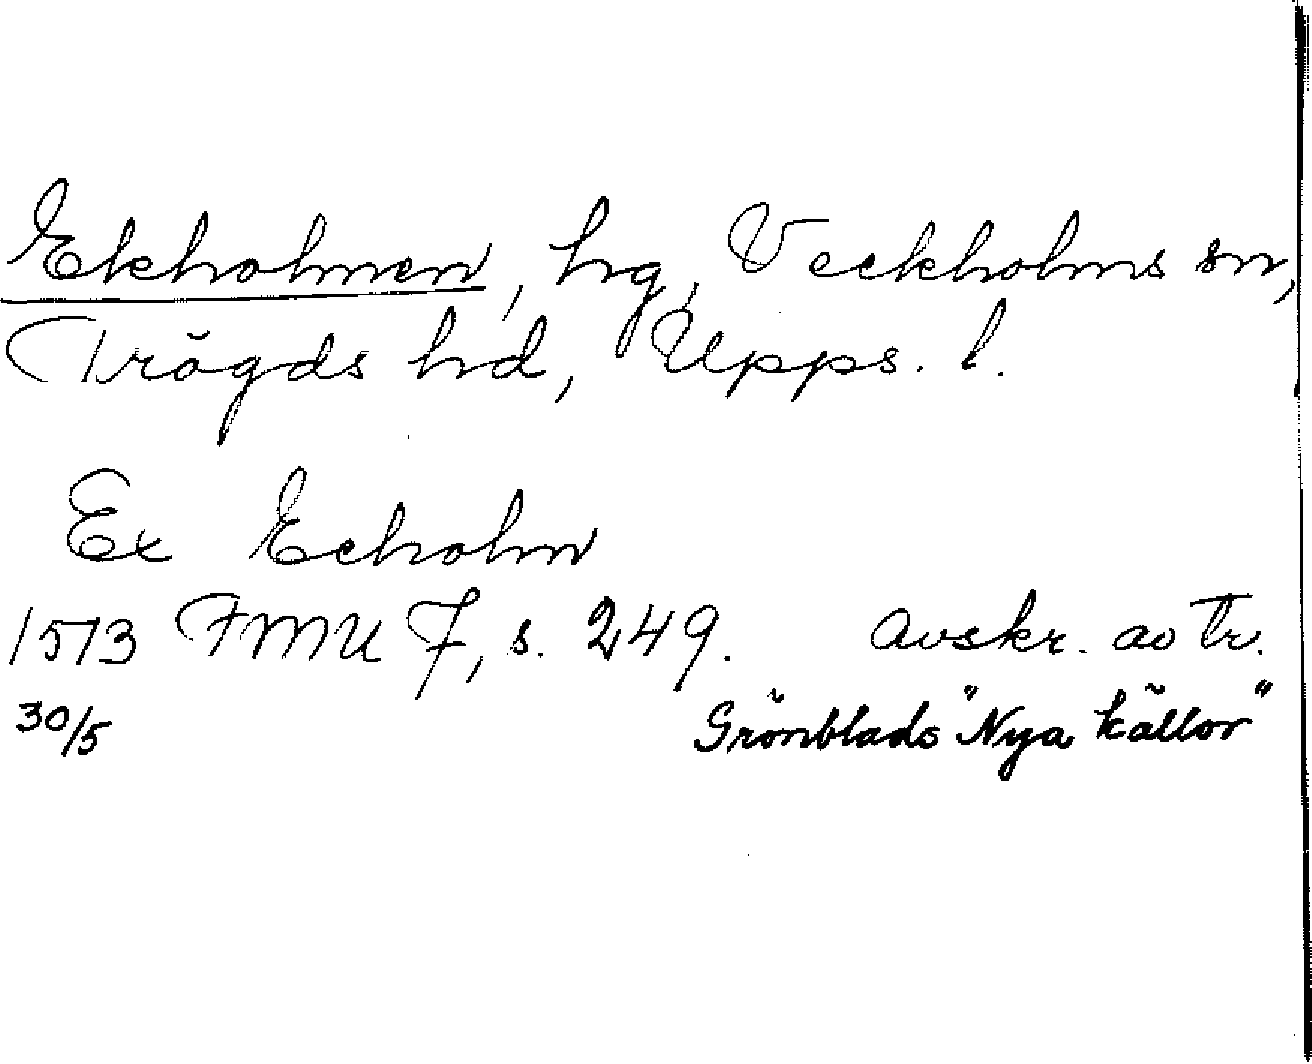 Ekholmen, hg, Veckholms sn,
Trögds hd, Upps. l.
Ex Echolm
1513 FMU 7, s. 249. Avskr. av tr.
30/5 Grönblads "Nya källor"